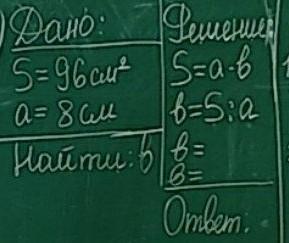 Дано:
S=96см²
a=8см
Найти: b
Решение:
S=a·b
b=S:a
b=
b=
Ответ.